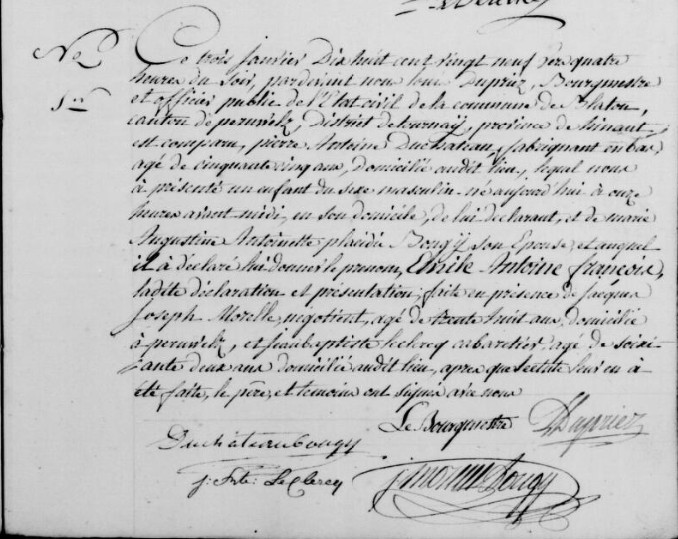 No
1er
Ce trois janvier Dix huit cent vingt neuf vers quatre
heures du soir, pardevant nous Dupriez, Bourgmestre
et officier public de l'Etat civil de la commune de Blaton,
canton de peruwelz, District de tournay, province de hainaut,
est comparu, pierre Antoine Duchateau, fabriquant en bas,
agé de cinquante cinq ans, domicilié audit lieu, lequel nous
à présenté un enfant du sexe masculin né aujourd'hui à onze
heures avant midi, en son domicile, de lui déclarant, et de marie
Augustine Antoinette placidie Bougÿ son Epouse, et auquel
il à déclaré lui donner le prenom, Emile Antoine françois,
ladite déclaration et présentation, faite en présence de Jacques
Joseph Morelle, négotient, agé de trente huit ans, domicilié
à peruwelz, et jeanbaptiste leclercq cabaretier, agé de soixi-
ante deux ans domicilié audit lieu, apres que lecture leur en à
été faite, le père, et temoins ont signés avec nous
Le Bourgmestre Dupriez
Duchâteaubougy
j: Bte: LeClercq